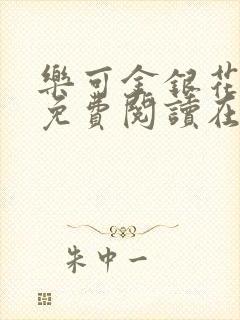 樂可金銀花
免費閱讀在
朱中一